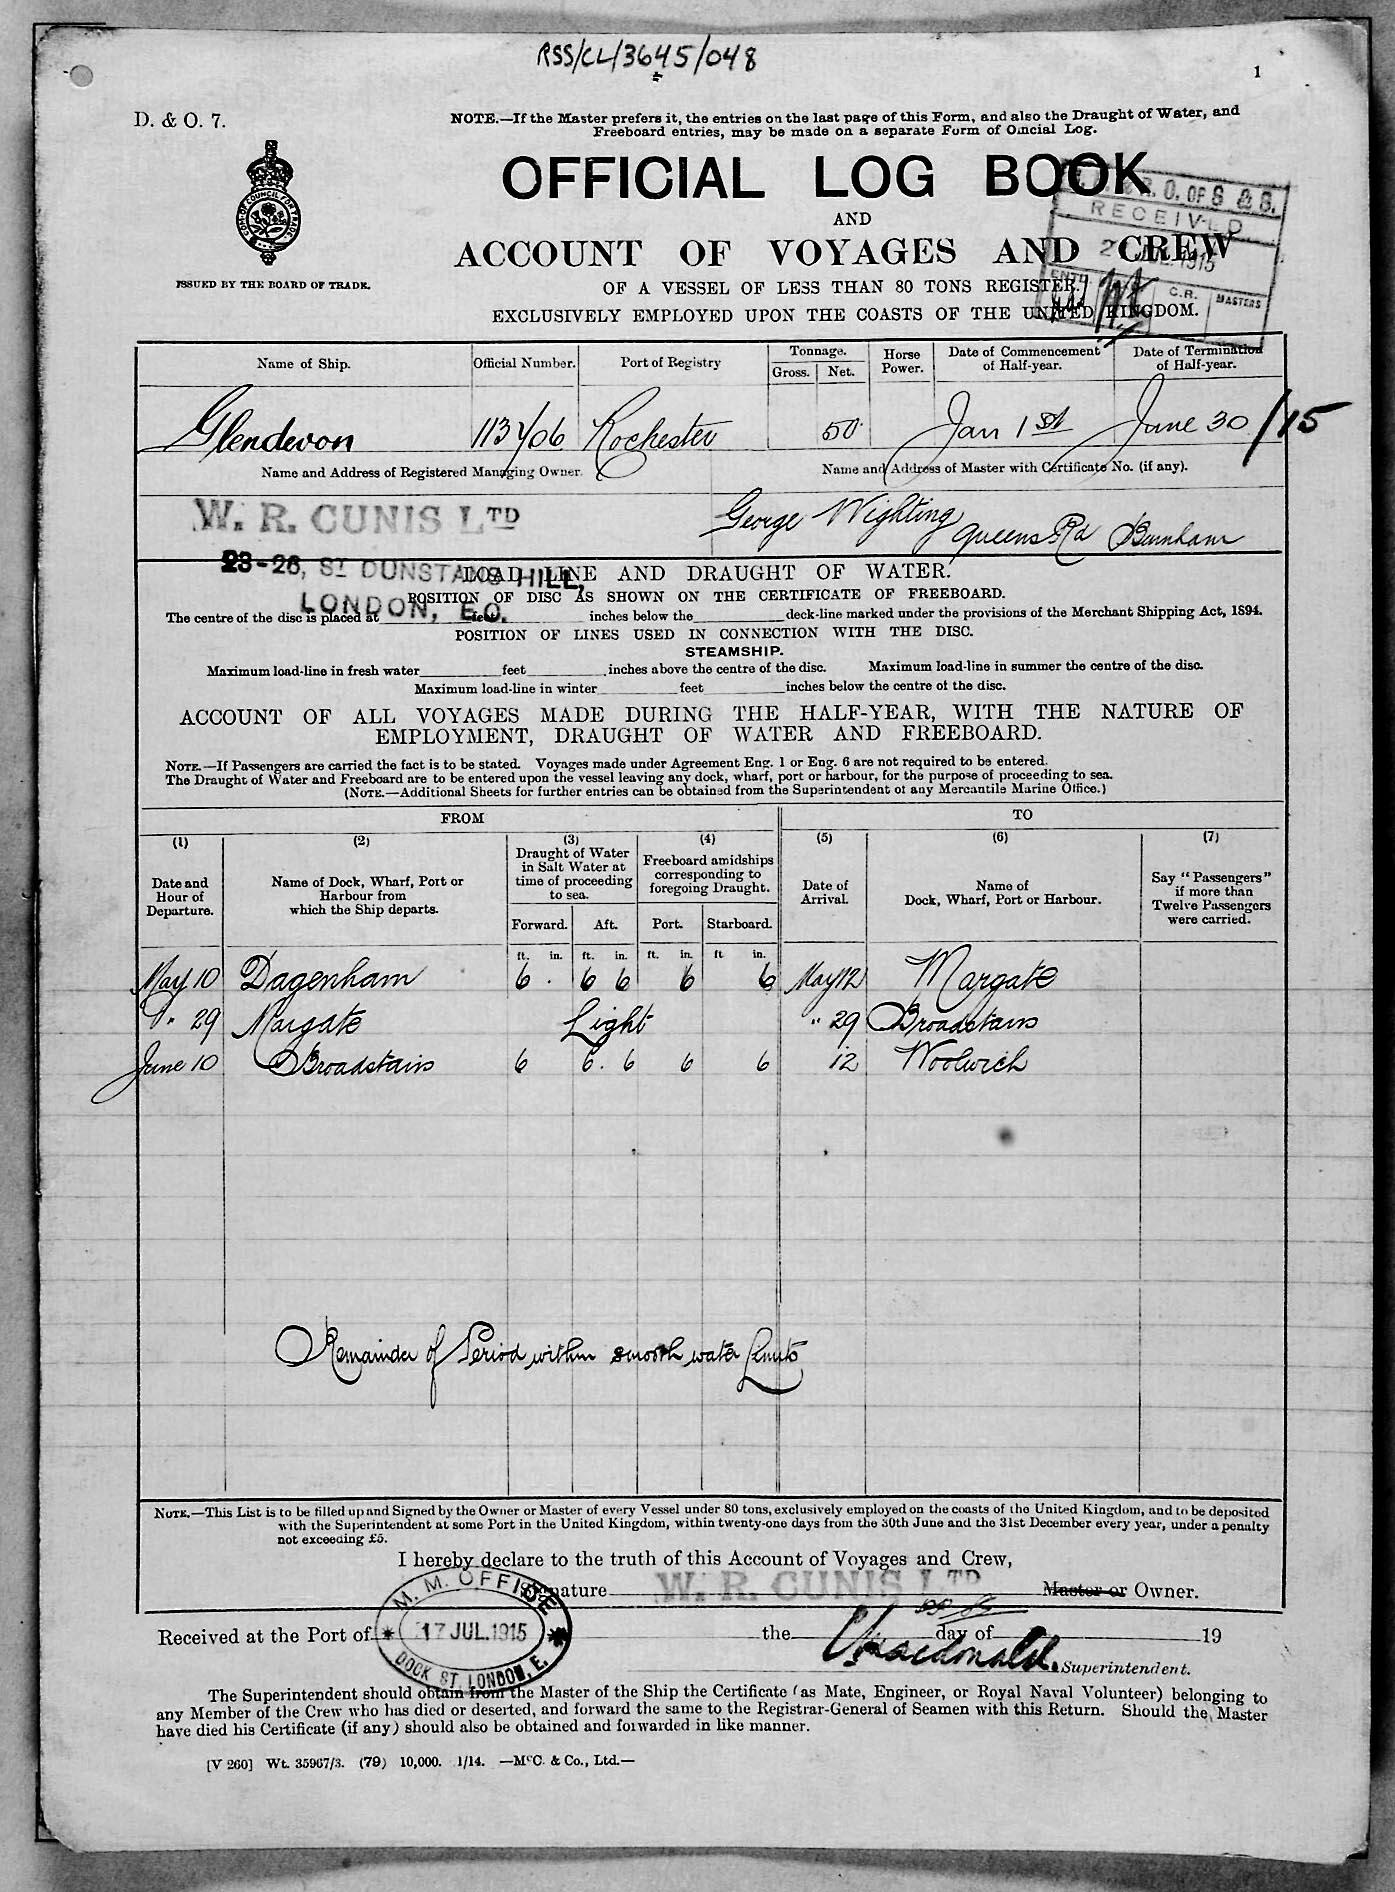 RSS/CL/3645/048
1
D. & O. 7.
NOTE.—If the Master prefers it, the entries on the last page of this Form, and also the Draught of Water, and
Freeboard entries, may be made on a separate Form of Official Log.
OFFICIAL LOG BOOK
AND
ACCOUNT OF VOYAGES AND CREW
OF A VESSEL OF LESS THAN 80 TONS REGISTER.
EXCLUSIVELY EMPLOYED UPON THE COASTS OF THE UNITED KINGDOM.
COM. OF COUNCIL FOR TRADE
ISSUED BY THE BOARD OF TRADE.
R. O. OF S & S.
RECEIVED
JUL. 1915
C.R. MASTERS
Name of Ship. Official Number. Port of Registry Tonnage. Gross. Net. Horse Power. Date of Commencement of Half-year. Date of Termination of Half-year.
Glendevon 113706 Rochester 50 Jan 1st June 30/15
Name and Address of Registered Managing Owner. Name and Address of Master with Certificate No. (if any).
W. R. CUNIS LTD George Wighting Queens Rd Burnham
23-26, ST DUNSTANS HILL,
LONDON, E.C.
LOAD LINE AND DRAUGHT OF WATER.
POSITION OF DISC AS SHOWN ON THE CERTIFICATE OF FREEBOARD.
The centre of the disc is placed at feet inches below the deck-line marked under the provisions of the Merchant Shipping Act, 1894.
POSITION OF LINES USED IN CONNECTION WITH THE DISC.
STEAMSHIP.
Maximum load-line in fresh water feet inches above the centre of the disc. Maximum load-line in summer the centre of the disc.
Maximum load-line in winter feet inches below the centre of the disc.
ACCOUNT OF ALL VOYAGES MADE DURING THE HALF-YEAR, WITH THE NATURE OF
EMPLOYMENT, DRAUGHT OF WATER AND FREEBOARD.
NOTE.—If Passengers are carried the fact is to be stated. Voyages made under Agreement Eng. 1 or Eng. 6 are not required to be entered.
The Draught of Water and Freeboard are to be entered upon the vessel leaving any dock, wharf, port or harbour, for the purpose of proceeding to sea.
(NOTE.—Additional Sheets for further entries can be obtained from the Superintendent of any Mercantile Marine Office.)
FROM TO
(1) (2) (3) (4) (5) (6) (7)
Date and Hour of Departure. Name of Dock, Wharf, Port or Harbour from which the Ship departs. Draught of Water in Salt Water at time of proceeding to sea. Freeboard amidships corresponding to foregoing Draught. Date of Arrival. Name of Dock, Wharf, Port or Harbour. Say "Passengers" if more than Twelve Passengers were carried.
Forward. Aft. Port. Starboard.
ft. in. ft. in. ft. in. ft in.
May 10 Dagenham 6 . 6 6 6 6 May 12 Margate
" 29 Margate Light " 29 Broadstairs
June 10 Broadstairs 6 6. 6 6 6 12 Woolwich
Remainder of Period within smooth water Limits
NOTE.—This List is to be filled up and Signed by the Owner or Master of every Vessel under 80 tons, exclusively employed on the coasts of the United Kingdom, and to be deposited
with the Superintendent at some Port in the United Kingdom, within twenty-one days from the 30th June and the 31st December every year, under a penalty
not exceeding £5.
I hereby declare to the truth of this Account of Voyages and Crew,
Signature W. R. CUNIS LTD Master or Owner.
M. M. OFFICE
17 JUL. 1915
DOCK ST. LONDON, E.
Received at the Port of the day of 19
Macdonald. Superintendent.
The Superintendent should obtain from the Master of the Ship the Certificate (as Mate, Engineer, or Royal Naval Volunteer) belonging to
any Member of the Crew who has died or deserted, and forward the same to the Registrar-General of Seamen with this Return. Should the Master
have died his Certificate (if any) should also be obtained and forwarded in like manner.
[V 260] Wt. 35967/3. (79) 10,000. 1/14. —McC. & Co., Ltd.—